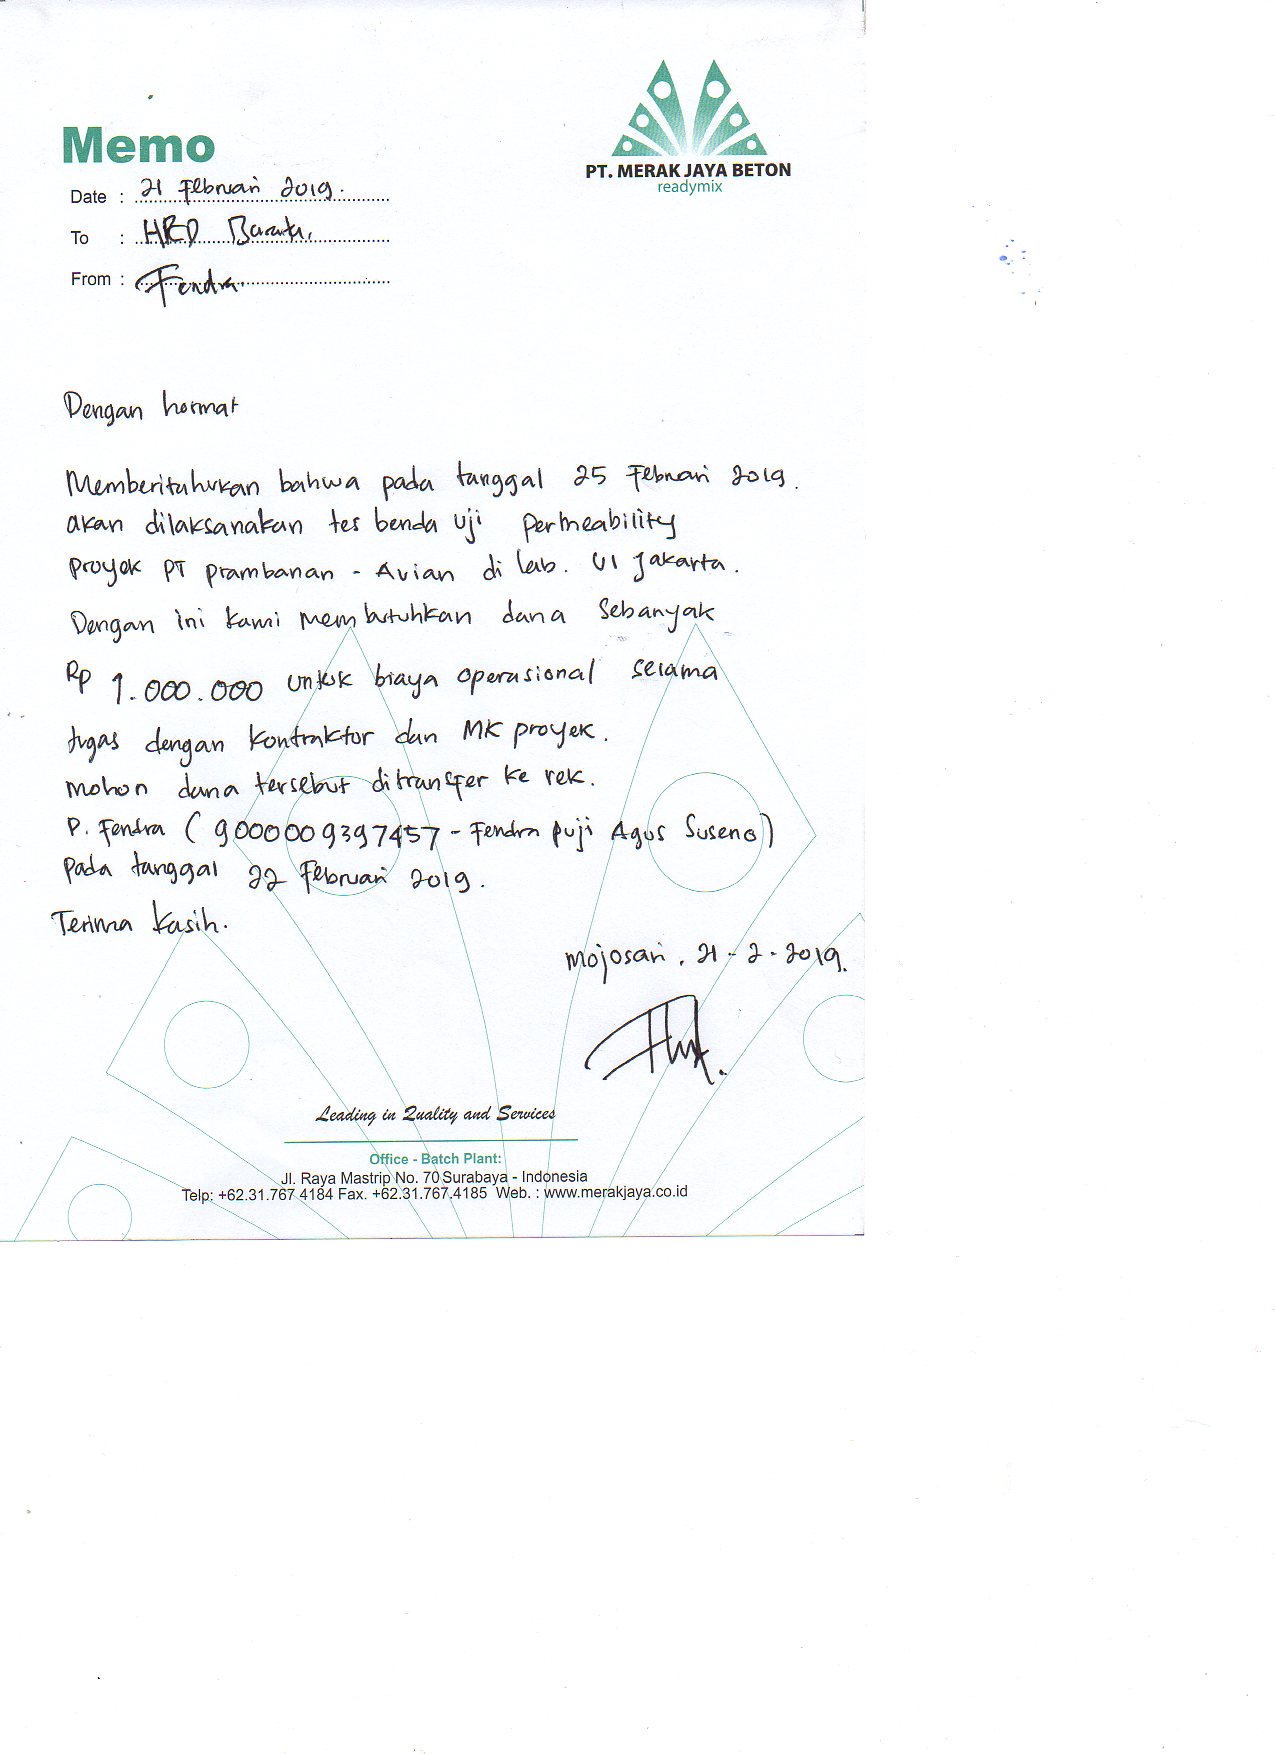 Memo
PT. MERAK JAYA BETON
readymix
Date : 21 Februari 2019.
To : HRD Barata.
From : Fendra.
Dengan hormat
Memberitahukan bahwa pada tanggal 25 Februari 2019.
akan dilaksanakan tes benda uji permeability
proyek PT prambanan - Avian di lab. UI Jakarta.
Dengan ini kami membutuhkan dana sebanyak
Rp 1.000.000 untuk biaya operasional selama
tugas dengan kontraktor dan MK proyek.
mohon dana tersebut ditransfer ke rek.
P. Fendra ( 9000009397457 - Fendra puji Agus Suseno)
pada tanggal 22 Februari 2019.
Terima kasih.
Mojosari, 21 - 2 - 2019.
Leading in Quality and Services
Office - Batch Plant:
Jl. Raya Mastrip No. 70 Surabaya - Indonesia
Telp: +62.31.767 4184 Fax. +62.31.767.4185 Web. : www.merakjaya.co.id